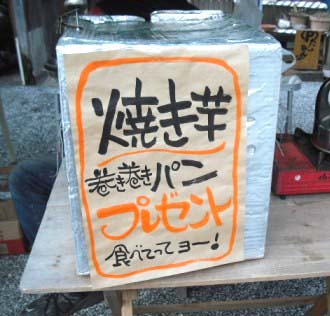 焼き芋
巻き巻きパン
プレゼント
食べてってヨー!